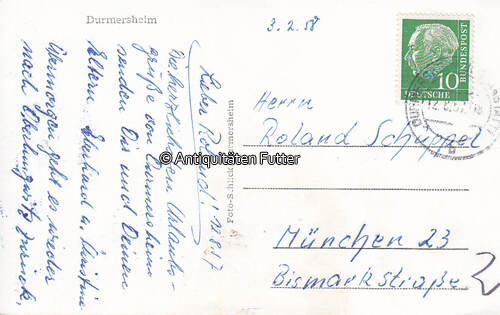 Durmersheim
3.2.58
10
DEUTSCHE
BUNDESPOST
Lieber Roland! 12.8.57
Die herzlichsten Urlaubs-
grüße von Durmersheim
senden Dir und Deinen
Eltern, Eberhard u. Christine
Übermorgen geht es wieder
nach zurück.
Foto-Schlick Durmersheim
© Antiquitäten Futter
Herrn
Roland Schuppel
München 23
Bismarkstraße
2